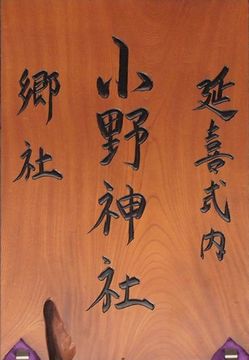 延喜式内
小野神社
郷社